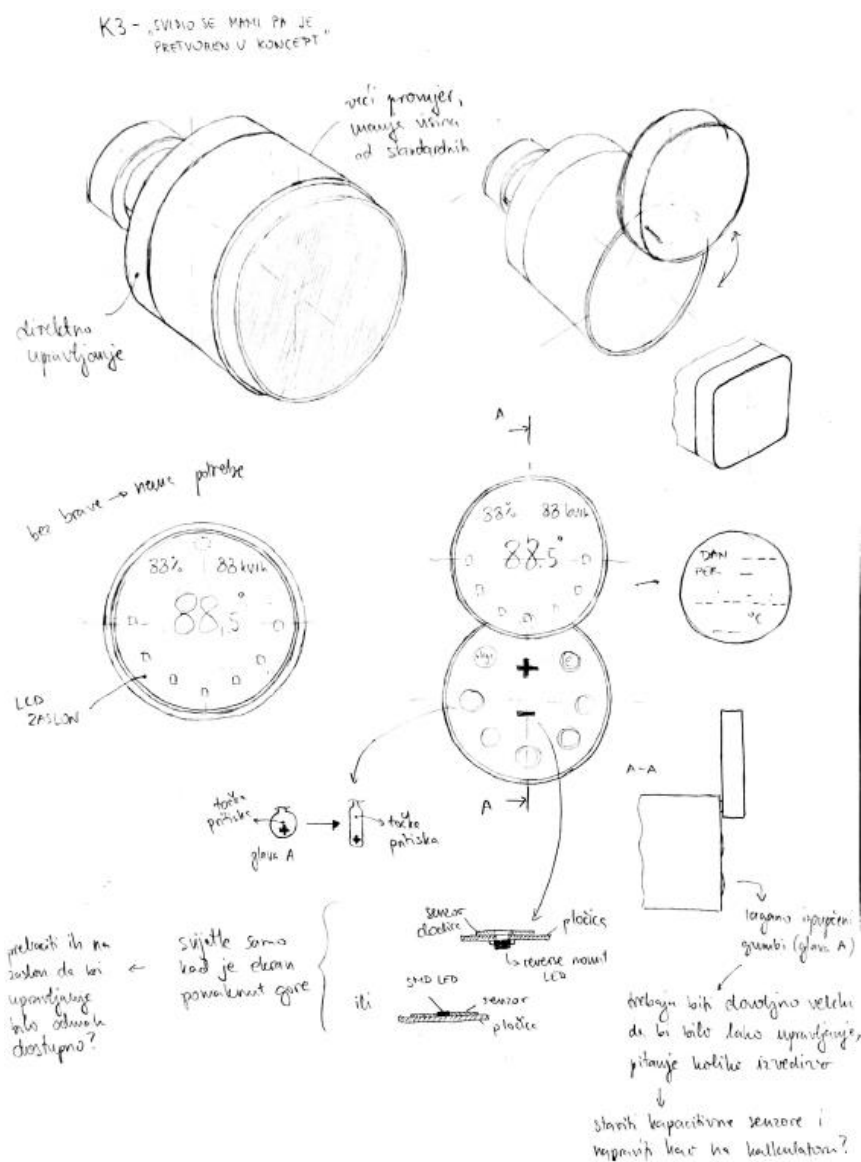 K3 - "SVIDIO SE MAMI PA JE
PRETVOREN U KONCEPT"
veći promjer,
manja visina
od standardnih
direktno
upravljanje
A
bez brave → nema potrebe
88% 88 kWh
88,5°
LCD
ZASLON
88% 88 kWh
88.5°
+
-
DAN
PER.
°C
A
A-A
točka
pritiska
+
glava A
+
točka
pritiska
lagano ispupčeni
gumbi (glava A)
senzor
dodira
pločica
reverse mount
LED
ili
SMD LED
senzor
pločica
svijetle samo
kad je ekran
pomaknut gore
prebaciti ih na
zaslon da bi
upravljanje
bilo odmah
dostupno?
trebaju biti dovoljno veliki
da bi bilo lako upravljanje,
pitanje koliko izvedivo
staviti kapacitivne senzore i
napraviti kao na kalkulatoru?